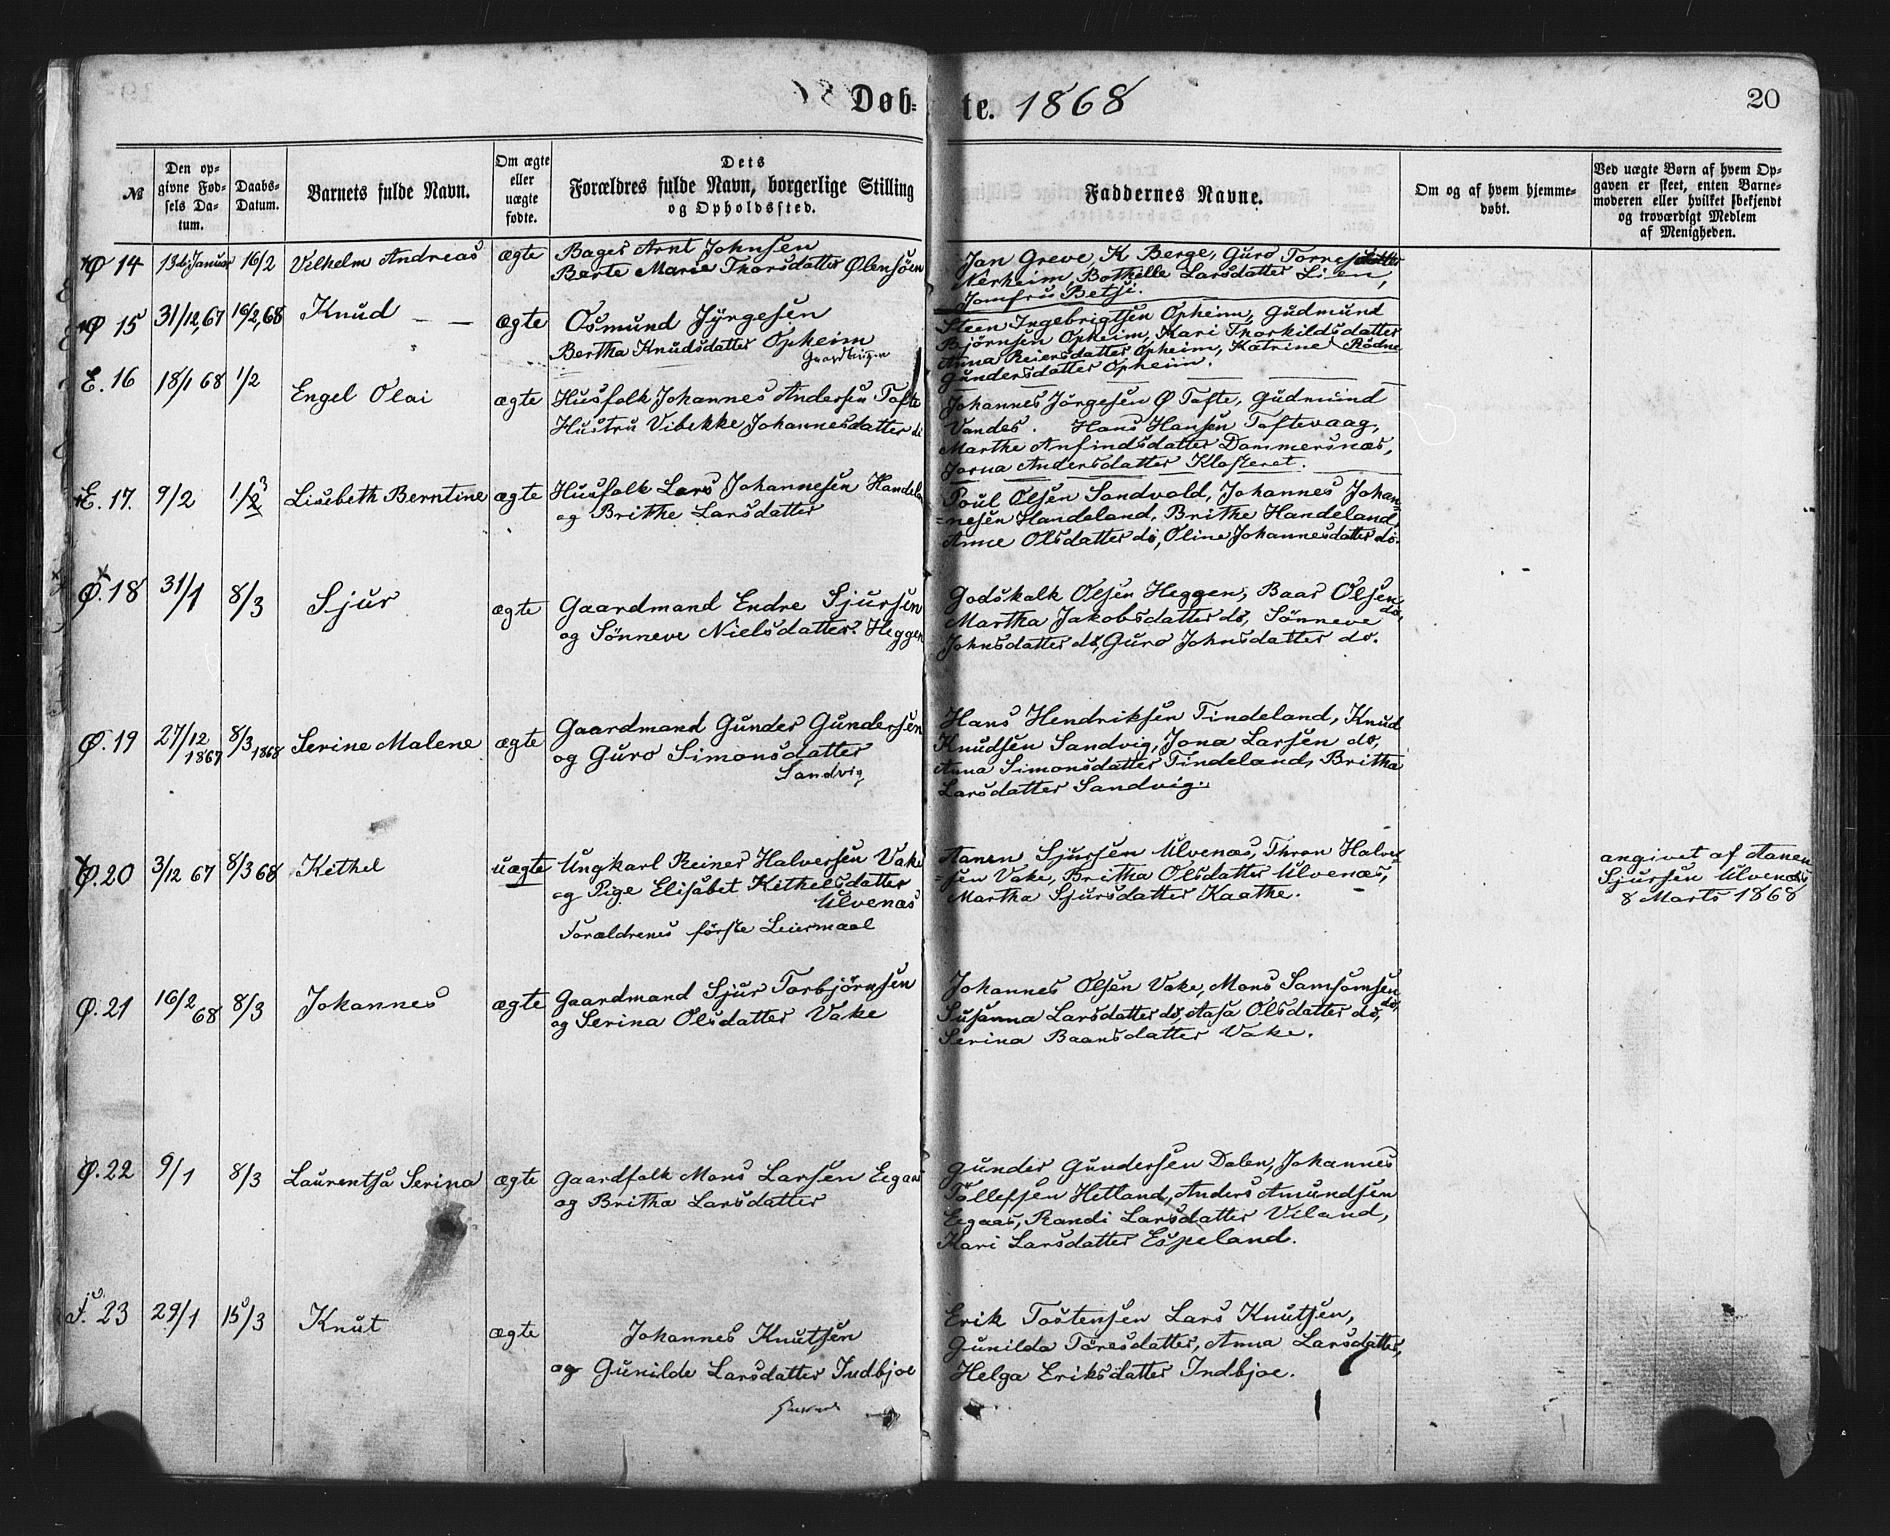 Døb- te. 1868
20
№
Den op-
givne Fød-
sels Da-
tum.
Daabs-
Datum.
Barnets fulde Navn.
Om ægte
eller
uægte
fødte.
Dets
Forældres fulde Navn, borgerlige Stilling
og Opholdssted.
Faddernes Navne.
Om og af hvem hjemme-
døbt.
Ved uægte Børn af hvem Op-
gaven er skeet, enten Barne-
moderen eller hvilket bekjendt
og troværdigt Medlem
af Menigheden.
Ø 14 13de Januar 16/2 Vilhelm Andreas ægte
Bager Arnt Johnsen
Berte Marie Thorsdatter Ølensjøen
Jan Greve, K Berge, Guro Tornesdatter
Nerheim, Bothelle Larsdatter Lien,
Jomfru Betsi.
Ø 15 31/12,67 16/2,68 Knud — — ægte
Osmund Jyrgesen
Bertha Knudsdatter Opheim
Gaardbruger
Steen Ingebrigtsen Opheim, Gudmund
Bjørnsen Opheim, Kari Thorkildsdatter
Anna Reiersdatter Opheim, Katrine Rødne
Gundersdatter Opheim.
E. 16 18/1 68 1/2 Engel Olai ægte
Husfolk Johannes Andersen Tofte
Hustru Vibekke Johannesdatter do
Johannes Jørgesen Ø Tofte, Gudmund
Vandes. Hans Hansen Toftevaag,
Marthe Anfindsdatter Dommersnæs,
Jorna Andersdatter Klosteret.
E. 17. 9/2 1/3 Lisebeth Berntine ægte
Husfolk Lars Johannesen Handeland
og Brithe Larsdatter
Poul Olsen Sandvold, Johannes Johan-
=nesen Handeland, Brithe Handeland,
Anne Olsdatter do, Oline Johannesdatter do.
Ø. 18 31/1 8/3 Sjur ægte
Gaardmand Endre Sjursen
og Sønneve Nielsdatter Heggen
Godskalk Olsen Heggen, Baar Olsen
do,
Martha Jakobsdatter do, Sønneve
Johnsdatter do, Guro Johnsdatter do.
Ø. 19 27/12 1867 8/3 1868 Serine Malene ægte
Gaardmand Gunder Gundersen
og Guro Simonsdatter
Sandvig
Hans Hendriksen Tindeland, Knud
Knudsen Sandvig, Jona Larsen do,
Anna Simonsdatter Tindeland, Britha
Larsdatter Sandvig.
Ø. 20 3/12 67 8/3 68 Kithel uægte
Ungkarl Reiner Halversen Vake
og Pige Elisabet Kithelsdatter
Ulvenæs
Forældrenes første Leiermaal
Aanen Sjursen Ulvenæs, Thron Halver-
=sen Vake, Britha Olsdatter Ulvenæs,
Martha Sjursdatter Kaathe.
angivet af Aanen
Sjursen Ulvenæs
8 Marts 1868
Ø. 21 16/2 68 8/3 Johannes ægte
Gaardmand Sjur Torbjørnsen
og Serina Olsdatter Vake
Johannes Olsen Vake, Mons Samsomsen
do,
Susanna Larsdatter do, Aasa Olsdatter do,
Serina Baarsdatter Vake.
Ø. 22 9/1 8/3 Laurentsa Serina ægte
Gaardfolk Mons Larsen Eegaas
og Britha Larsdatter
Gunder Gundersen Dalen, Johannes
Tollefsen Hetland, Anders Amundsen
Eegaas, Randi Larsdatter Viland,
Kari Larsdatter Espeland.
23 29/1 15/3 Knut ægte
Johannes Knutsen
og Gunilde Larsdatter Indbjoe
Erik Tostensen Lars Knutsen,
Gunilda Toresdatter, Anna Larsdatter,
Helga Eriksdatter Indbjoe.